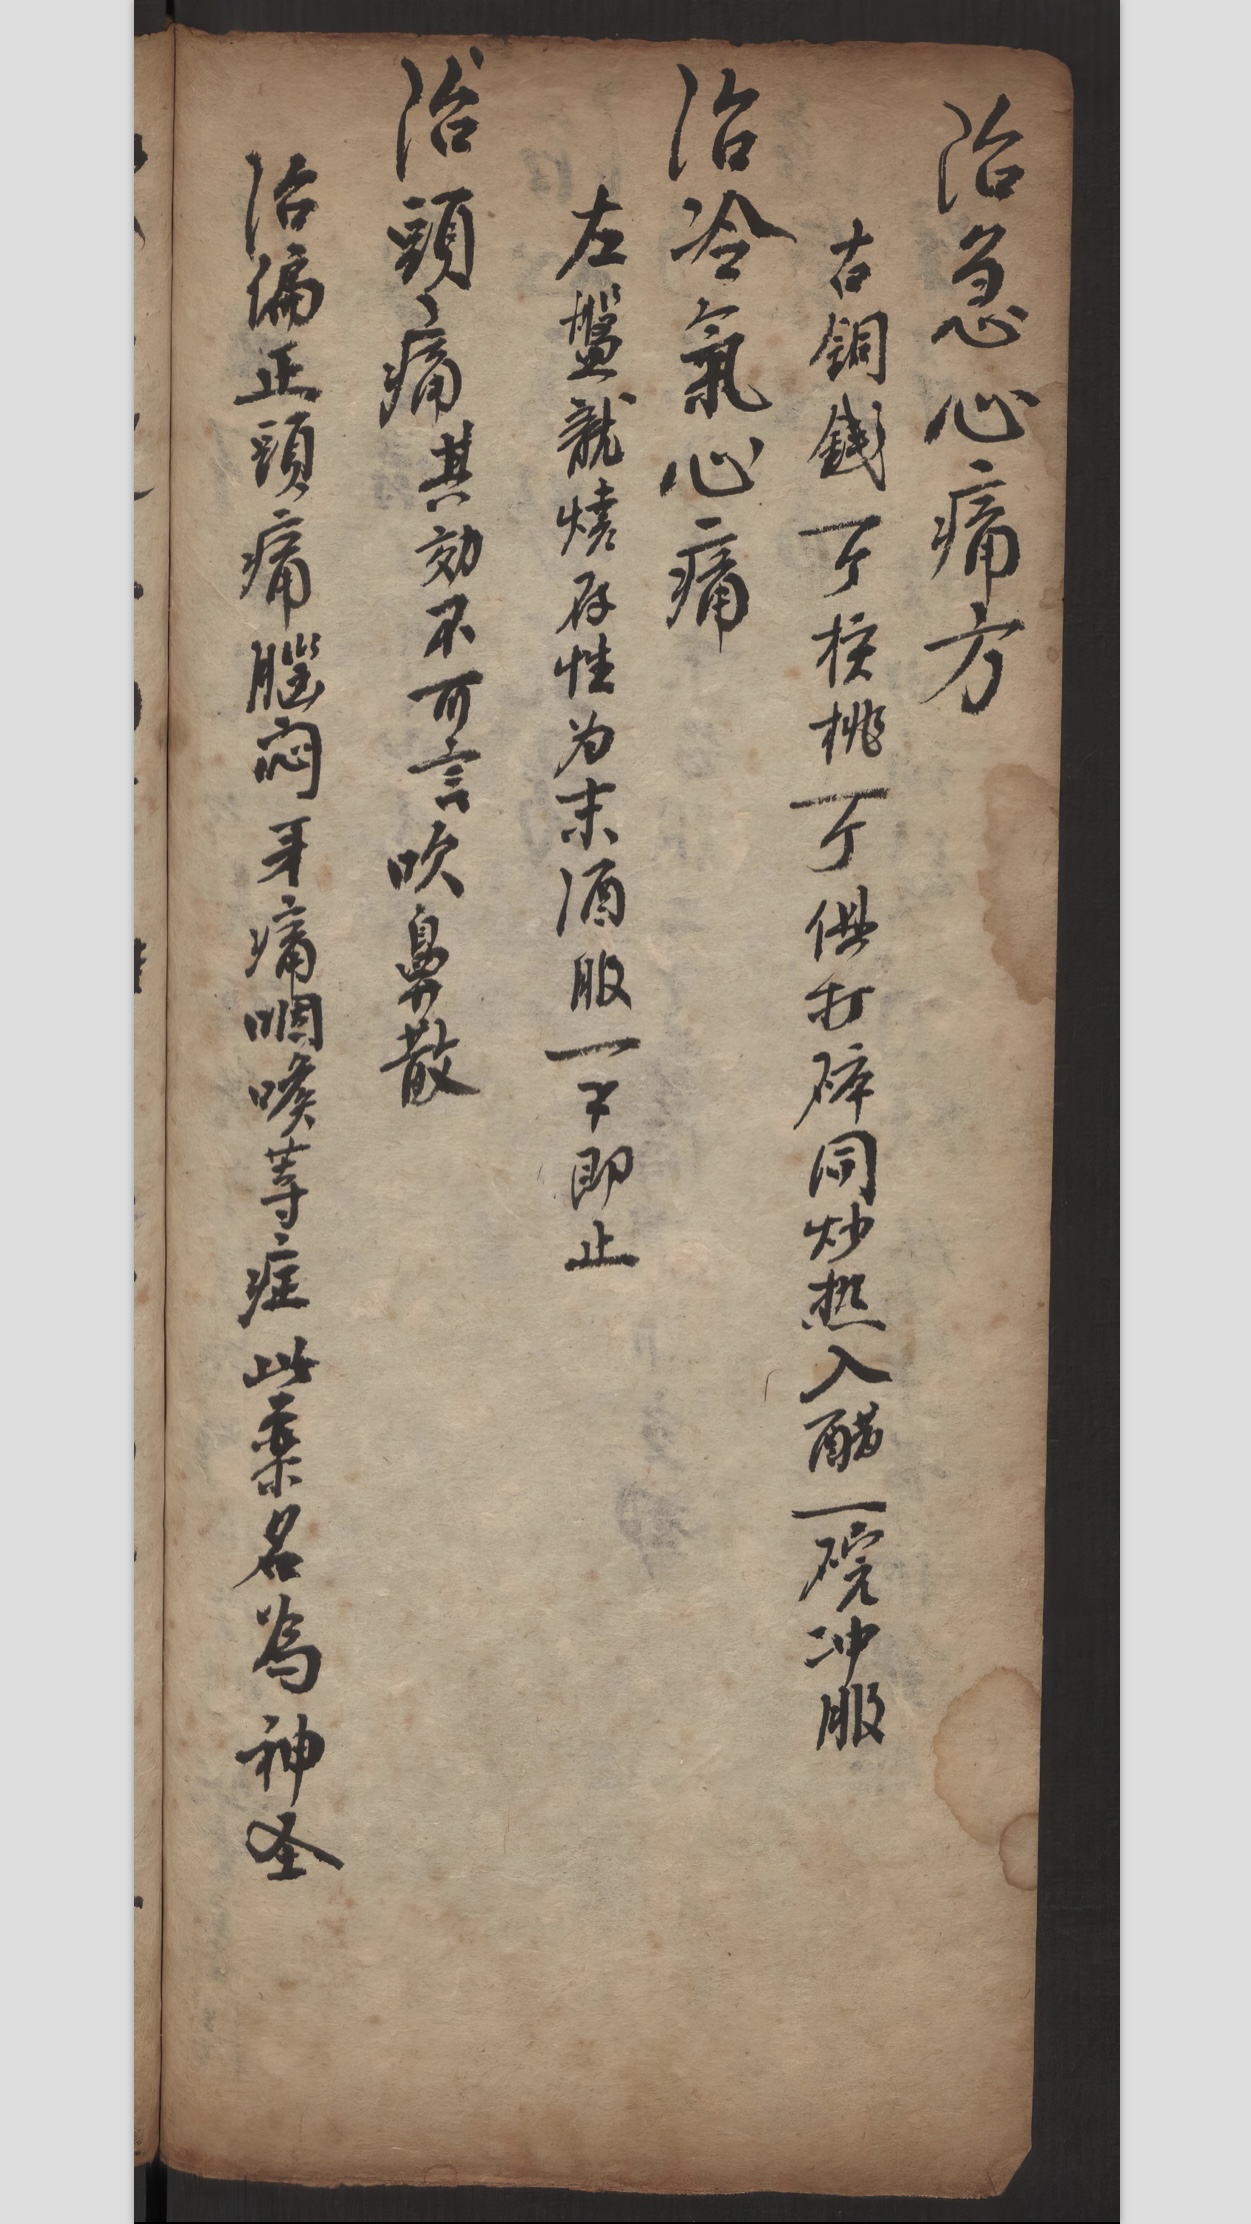 治急心痛方
古銅錢一个核桃一个俱打碎同炒热入醋一碗冲服
治冷氣心痛
左盤龍燒存性为末酒服一下即止
治頭痛其効不可言吹鼻散
治偏正頭痛腦悶牙痛咽喉等症此藥名為神圣